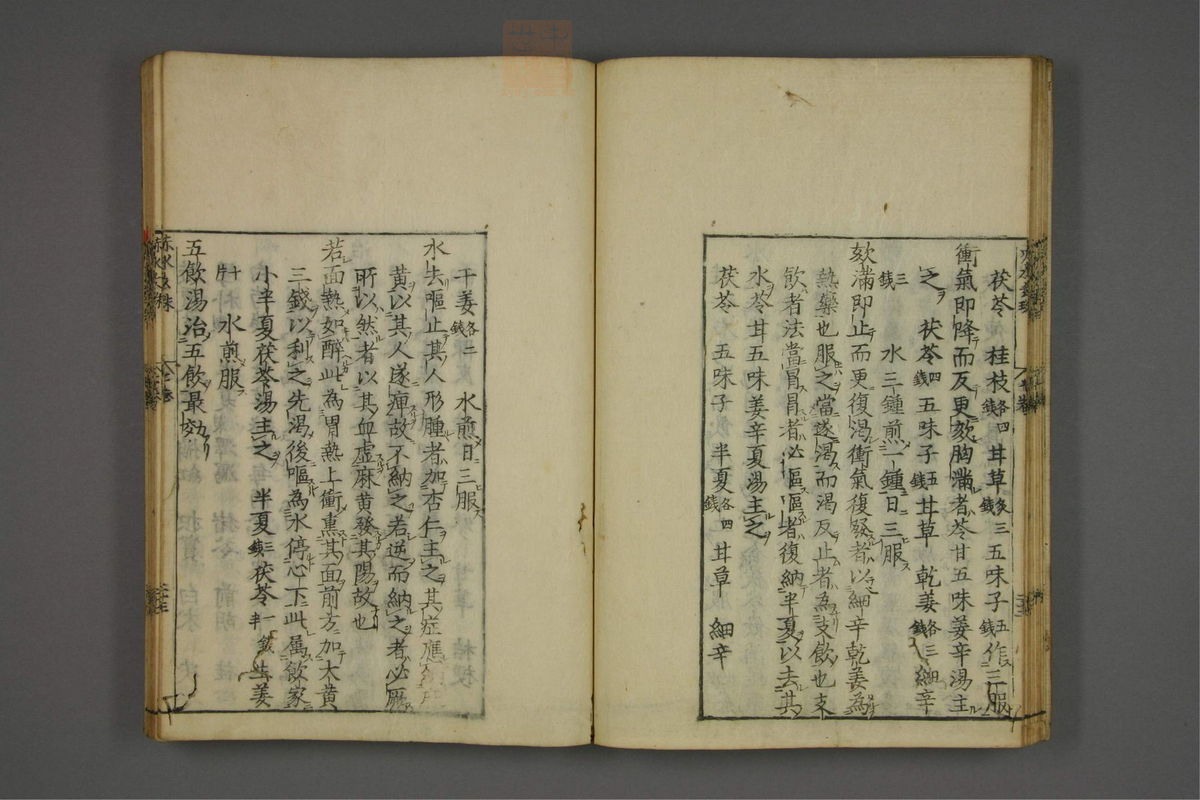 茯苓 桂枝各四錢 甘草炙三錢 五味子五錢 作三服
衝氣即降而反更欬胸滿者苓甘五味姜辛湯主
之 茯苓四錢 五味子五錢 甘草 乾姜各三錢 細辛
三錢 水三鍾煎一鍾日三服
欬滿即止而更復渴衝氣復發者以細辛乾姜為
熱藥也服之當遂渴而渴反止者為支飲也支
飲者法當冒冒者必嘔嘔者復納半夏以去其
水苓甘五味姜辛夏湯主之
茯苓 五味子 半夏各四錢 甘草 細辛
干姜各二錢 水煎日三服
水去嘔止其人形腫者加杏仁主之其症應
黃以其人遂痺故不納之若逆而納之者必厥
所以然者以其血虛麻黃發其陽故也
若面熱如醉此為胃熱上衝熏其面前方加大黃
三錢以利之先渴後嘔為水停心下此屬飲家
小半夏茯苓湯主之 半夏三錢 茯苓一錢半 生姜
十片 水煎服
五飲湯治五飲最効